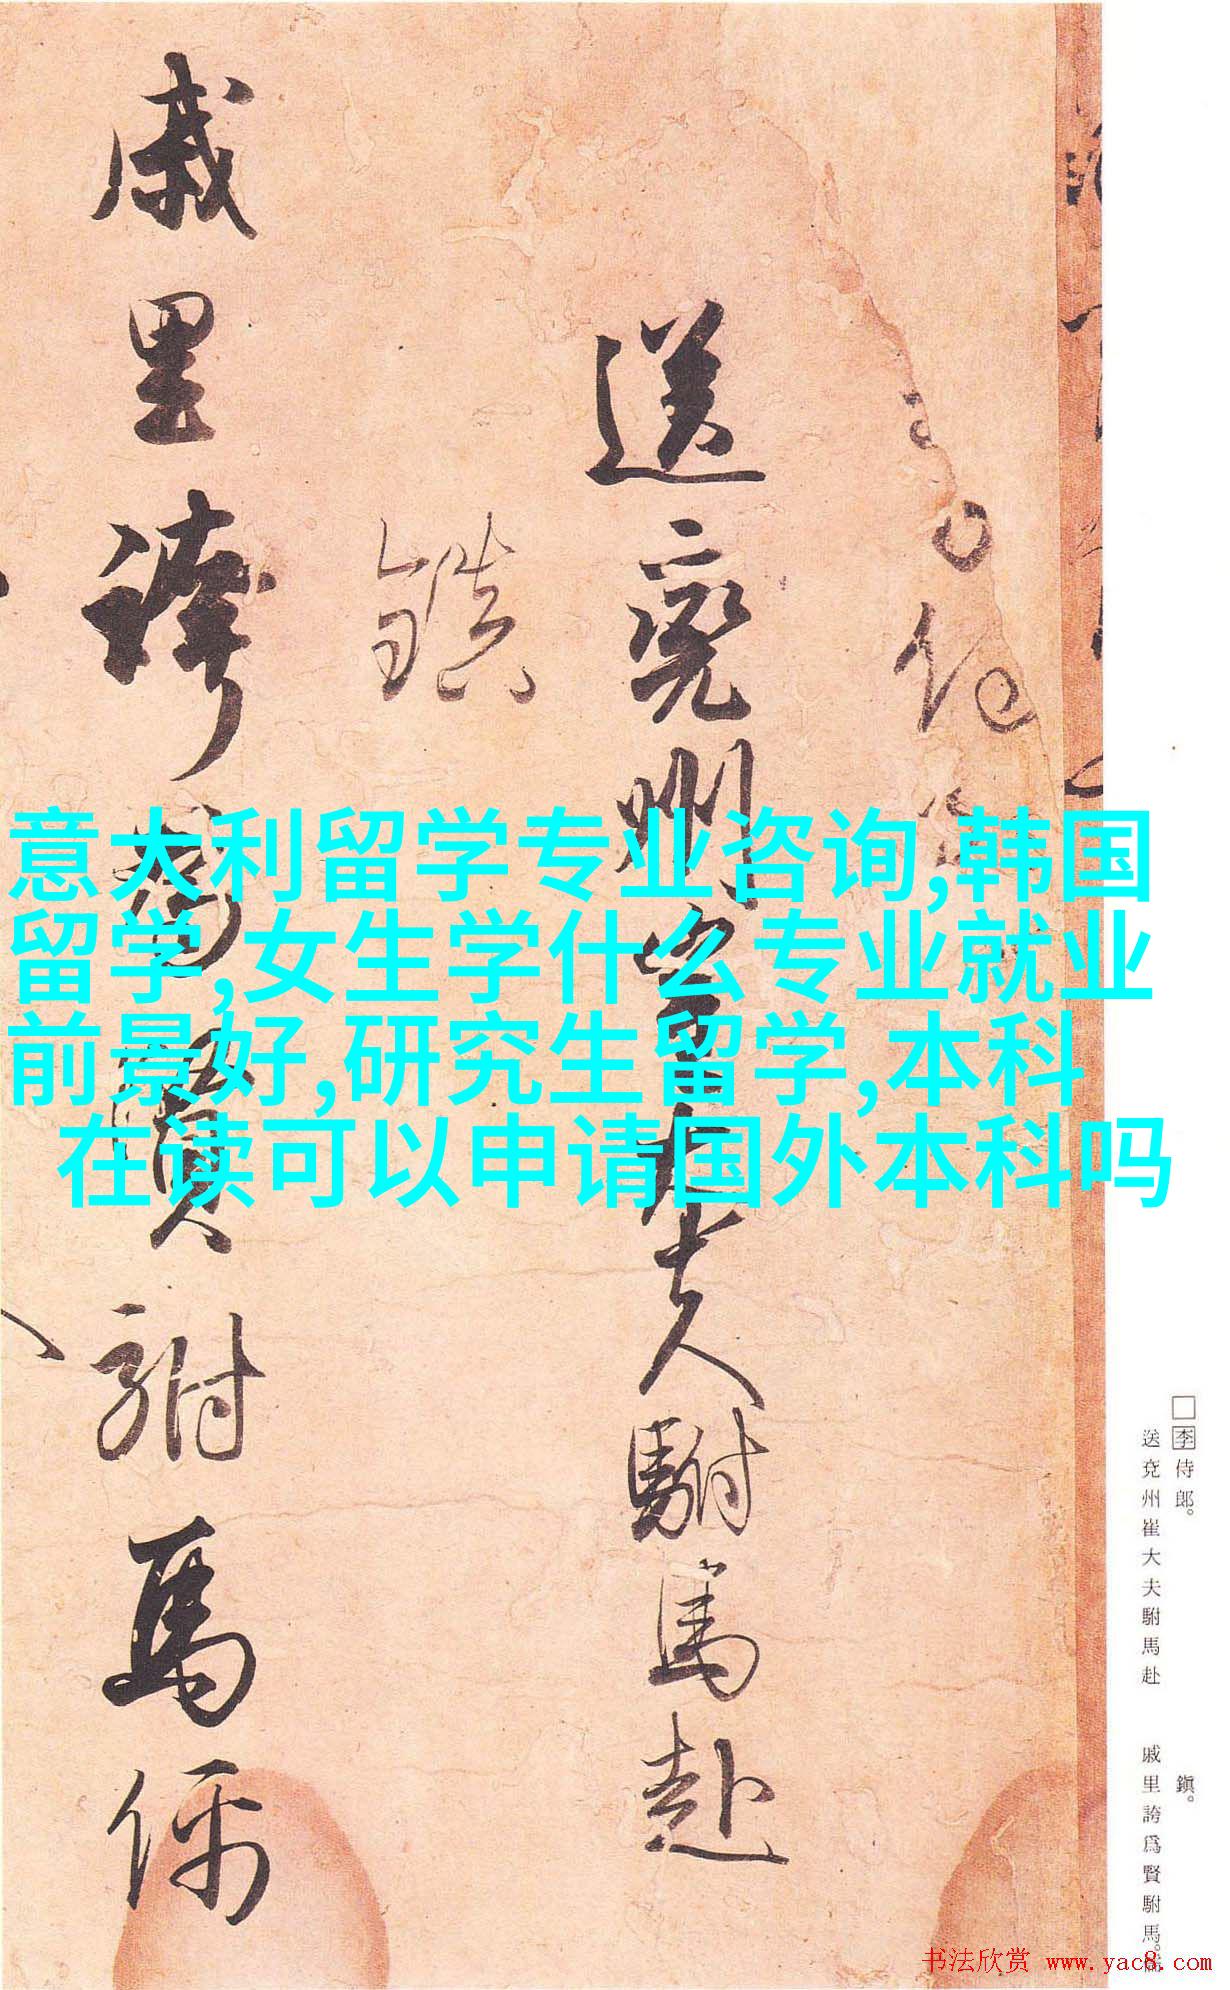 意大利留学专业咨询,韩国
留学,女生学什么专业就业
前景好,研究生留学,本科
在读可以申请国外本科吗
送兖州崔大夫駙馬赴
鎮
戚里誇為賢駙馬儒
□李侍郎。
送兗州崔大夫駙馬赴
鎮。
戚里誇爲賢駙馬。儒
书法欣赏 www.yac8.com